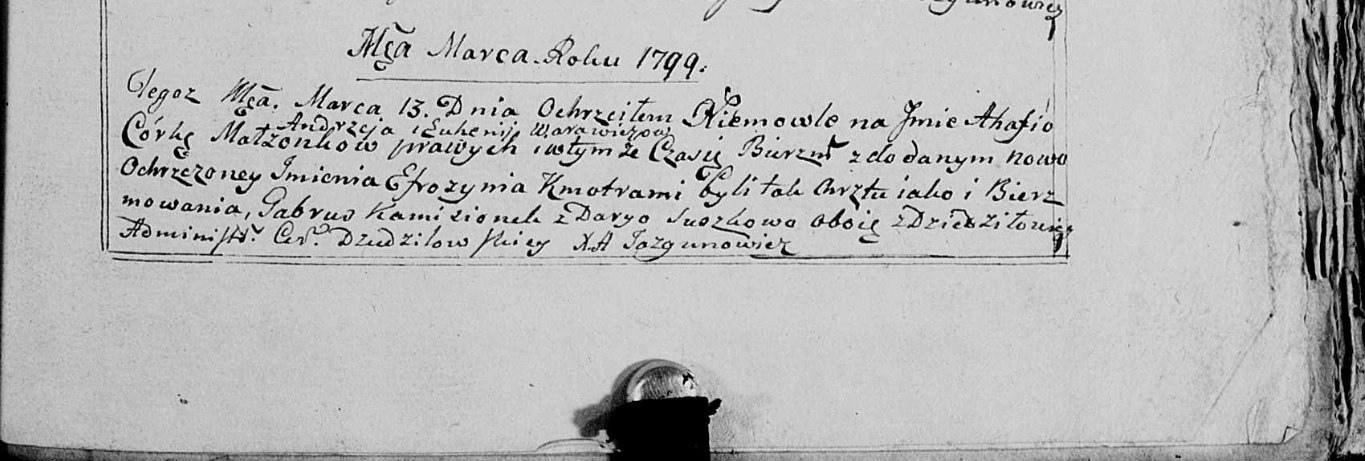 Mca Marca Roku 1799.
Tegoż Mca. Marca 13. Dnia Ochrzciłem Niemowle na Jmie Ahafią
Andrzeja i Euhenij Warawiczow
Córkę Małżonkow prawych i wtymże Czasię Bierzm zdodanym nowo
Ochrzczoney Jmienia Efrozynia Kmotrami byli tak Chrztu iako i Bierz
mowania, Gabrus Kamizionek z Daryo Suszkowo oboię z Dziedziłowicz
Administr. Cer. Dziedziłowskiey XA Jazgunowicz